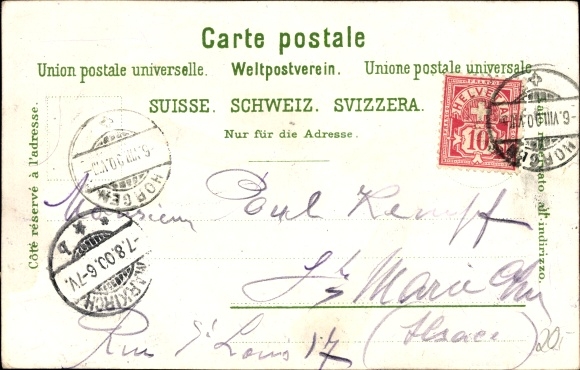 Carte postale
Union postale universelle. Weltpostverein. Unione postale universale
SUISSE. SCHWEIZ. SVIZZERA.
Nur für die Adresse.
Côté réservé à l'adresse.
all' indirizzo.
HELVETIA
10
HORGEN
6.VIII.00
HORGEN
MARKIRCH
-7.8.00.6-7V.
* b *
Monsieur Paul Kempf
Ste Marie
Rue St Louis 17 (Alsace)
20.-